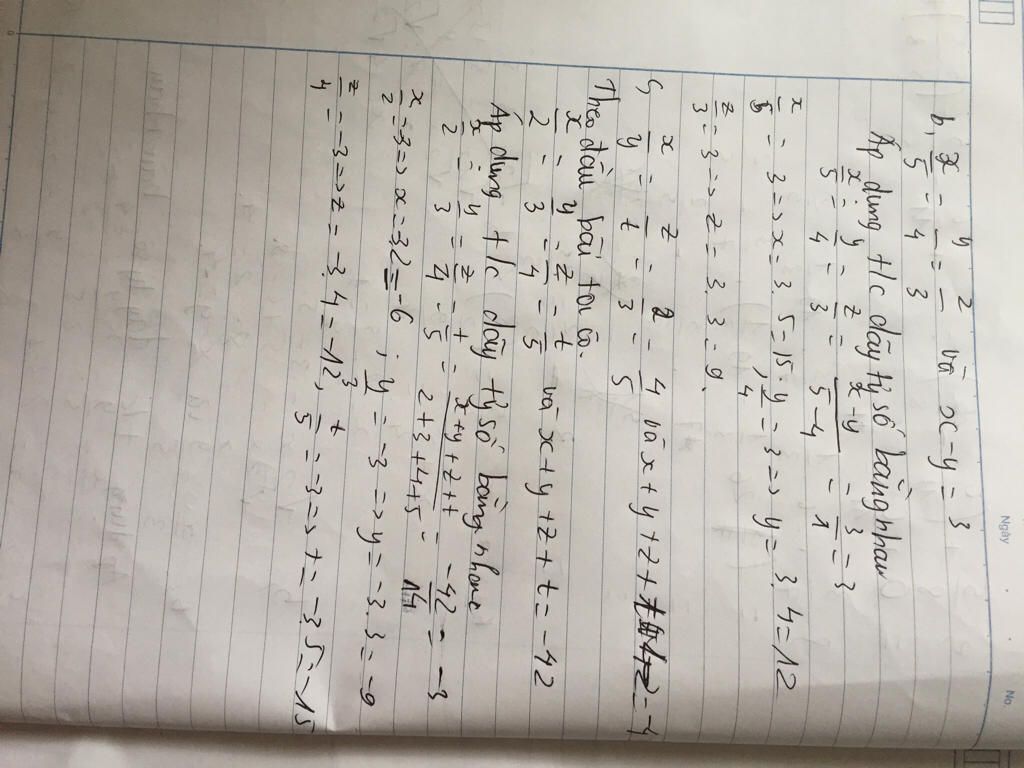 Ngày
No.
b, x/5 = y/4 = z/3 và x-y = 3
Áp dụng t/c dãy tỷ số bằng nhau
x/5 = y/4 = z/3 = x-y/5-4 = 3/1 = 3
x/5 = 3 => x = 3.5 = 15. y/4 = 3 => y = 3.4 = 12
z/3 = 3 => z = 3.3 = 9.
x/y = z/t = 2/3 = 4/5 và x + y + z +
Theo đầu bài ta có.
x/2 = y/3 = z/4 = t/5 và x + y + z + t = -42
Áp dụng t/c dãy tỷ số bằng nhau
x/2 = y/3 = z/4 = t/5 = x+y+z+t/2+3+4+5 = -42/14 = -3
x/2 = -3 => x = -3.2 = -6 ; y/3 = -3 => y = -3.3 = -9
z/4 = -3 => z = -3.4 = -12, t/5 = -3 => t = -3.5 = -15